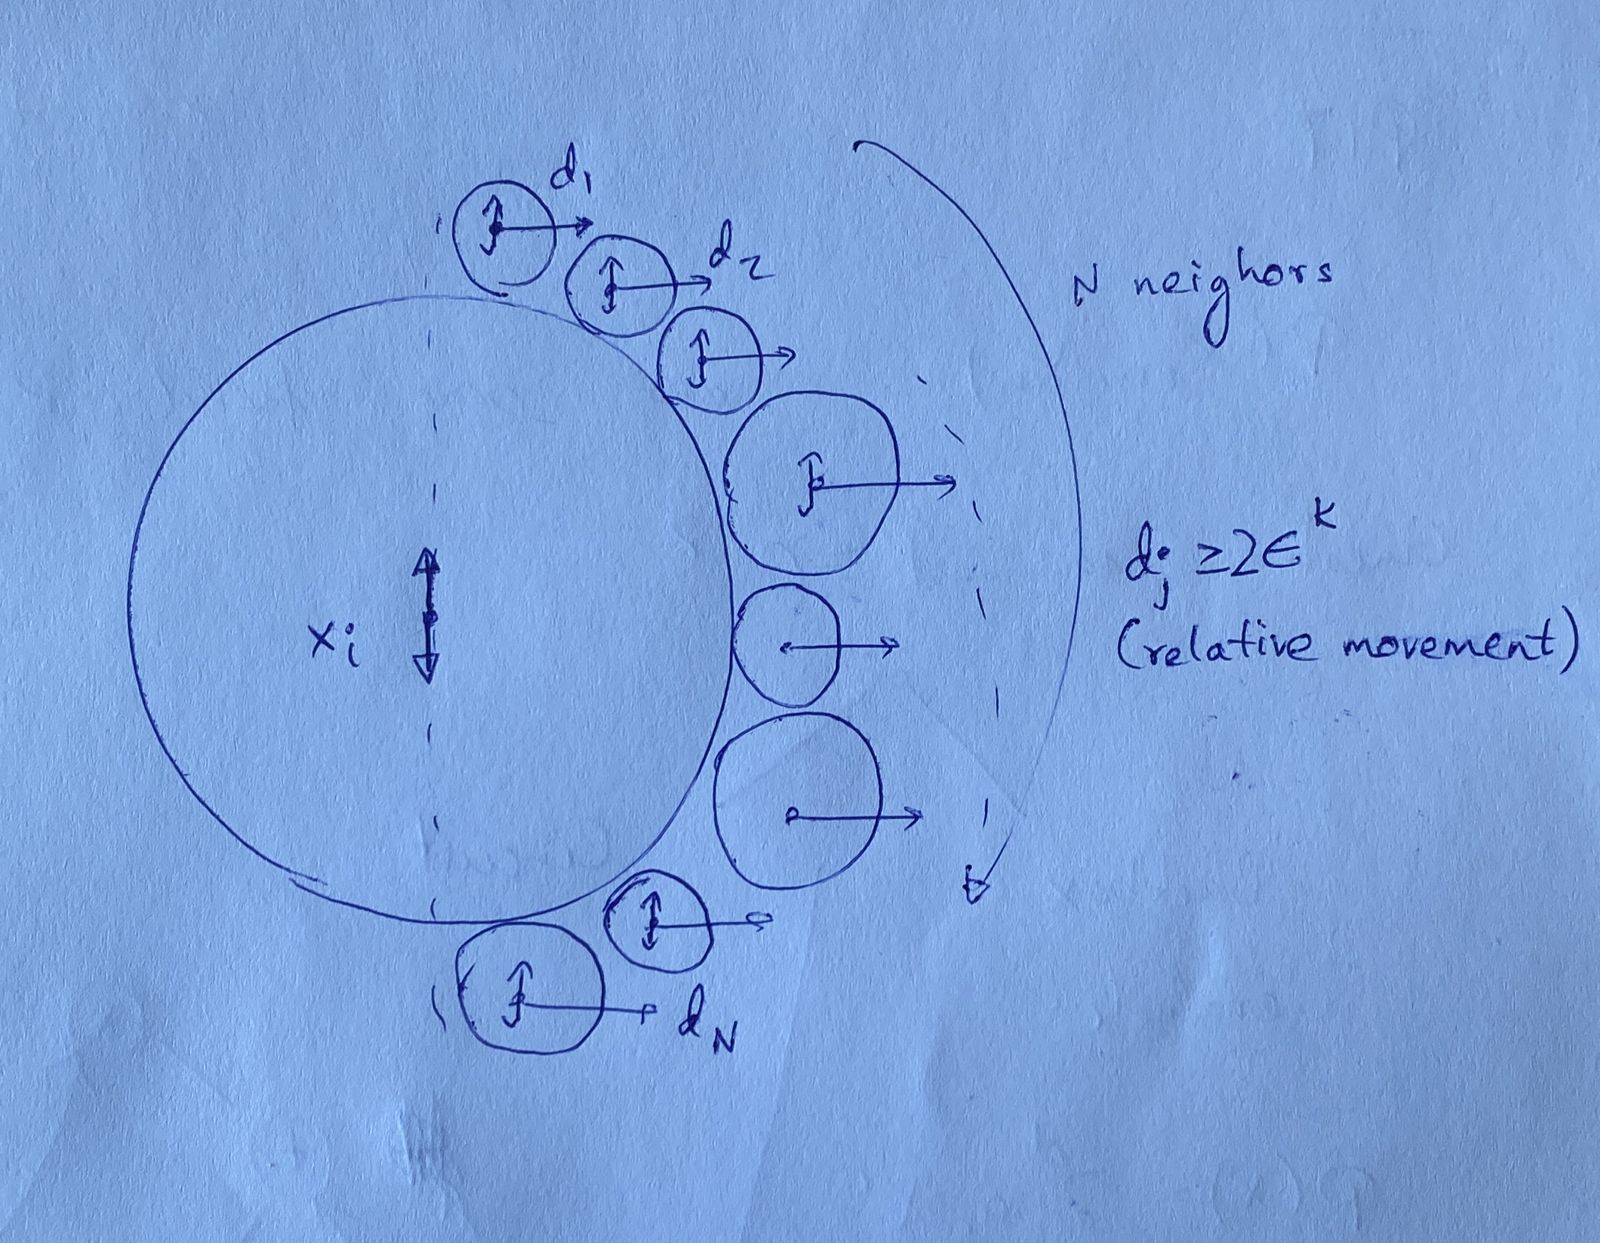 d₁
d₂
N neighors
dⱼ ≥ 2ϵᵏ
(relative movement)
xᵢ
d_N